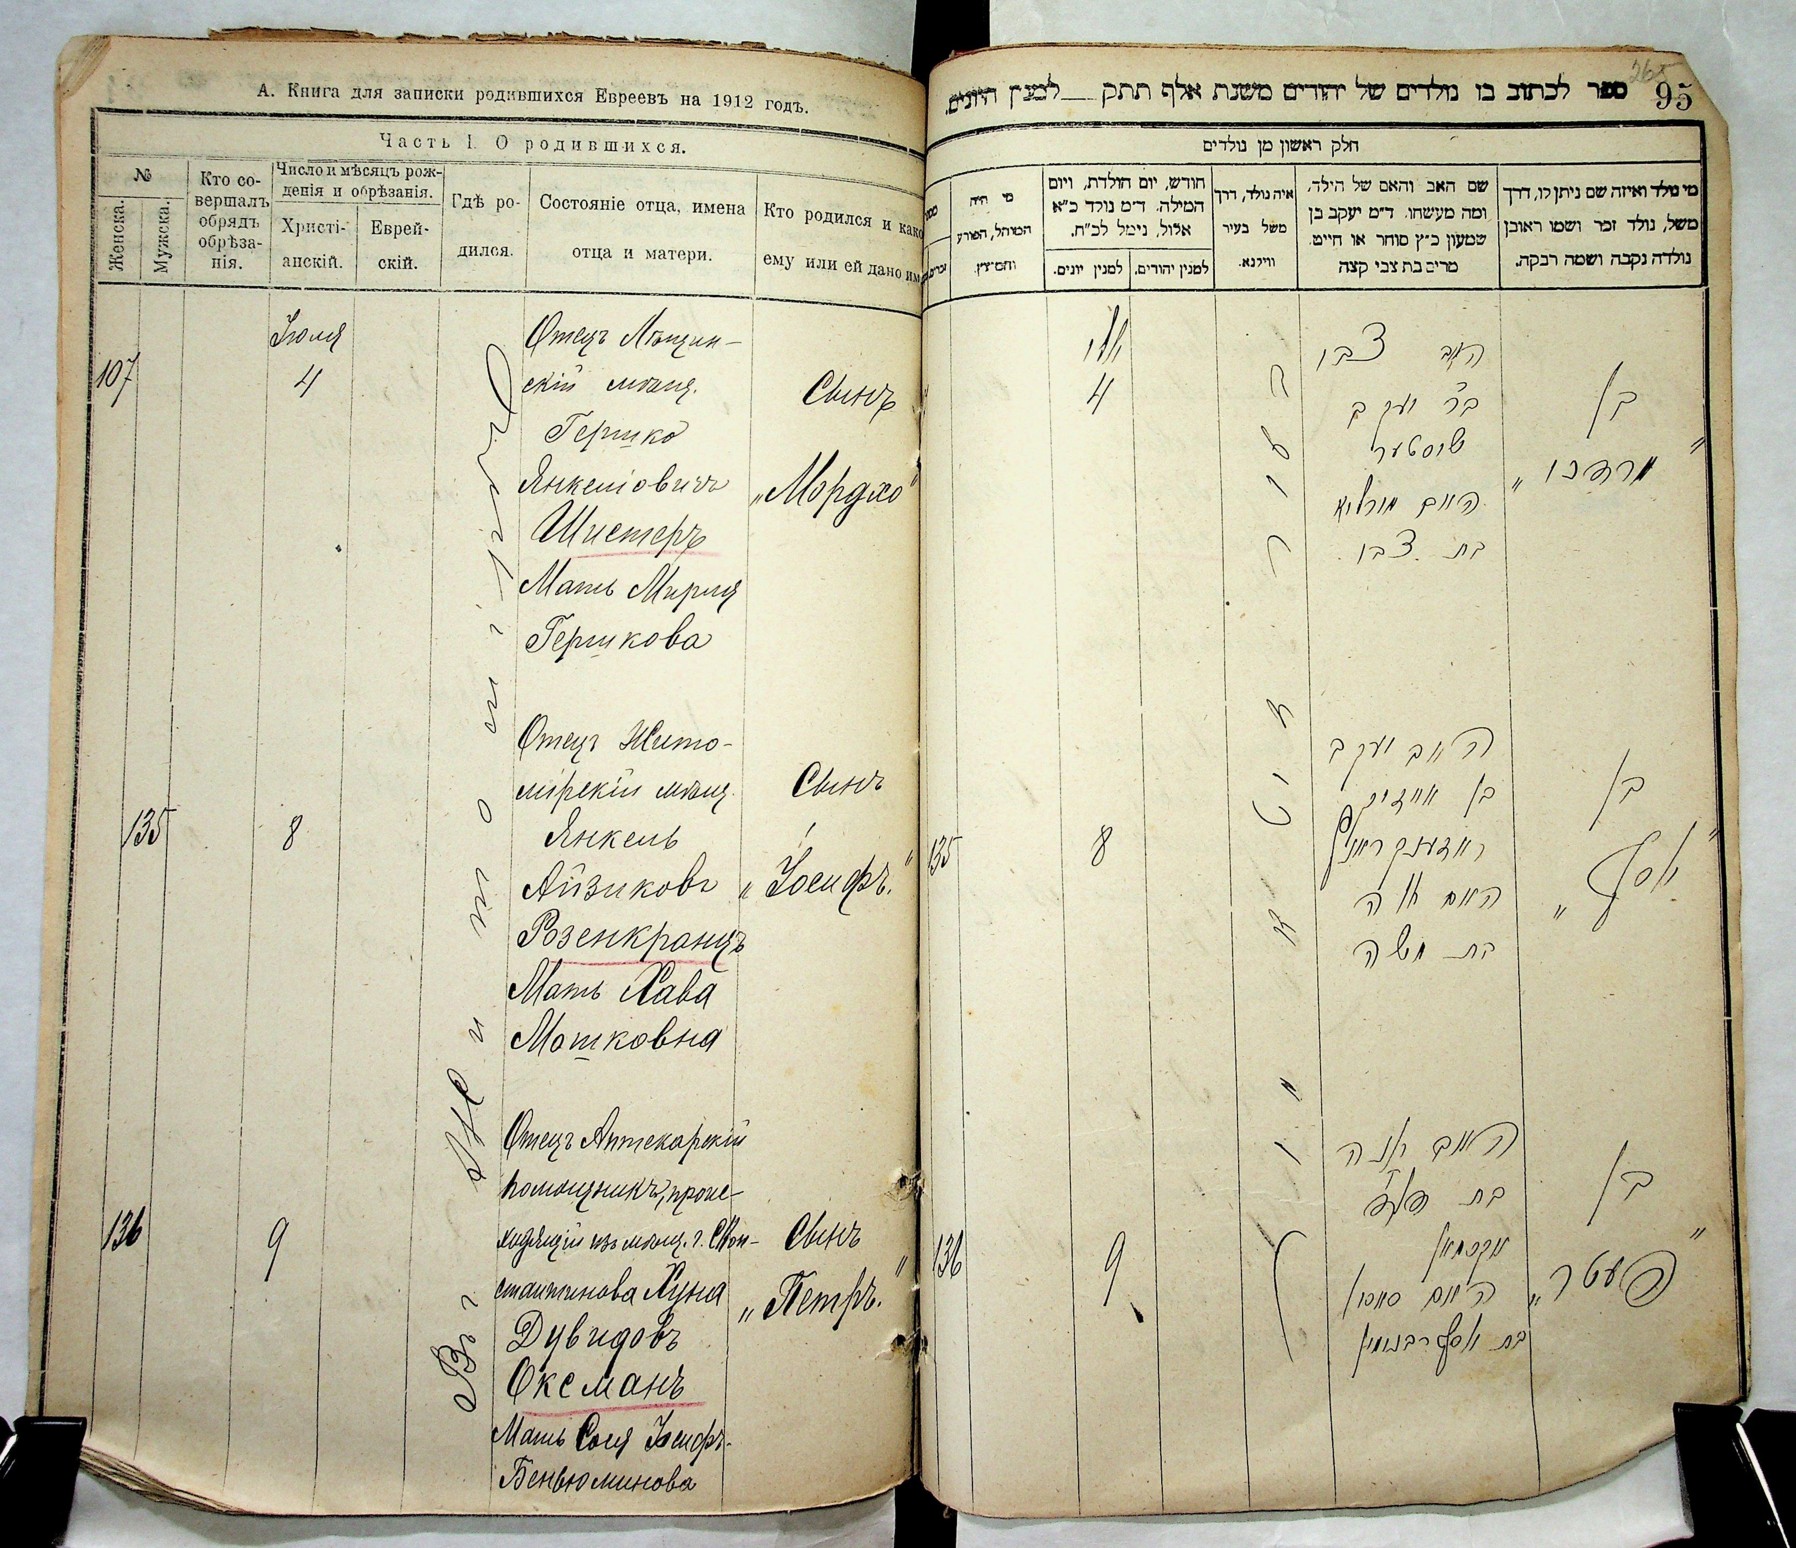 А. Книга для записки родившихся Евреевъ на 1912 годъ.
Часть I. О родившихся.
№
Женска.
Мужска.
Кто со-
вершалъ
обрядъ
обрѣза-
нія.
Число и мѣсяцъ рож-
денія и обрѣзанія.
Христі-
анскій.
Еврей-
скій.
Гдѣ ро-
дился.
Состояніе отца, имена
отца и матери.
Кто родился и како
ему или ей дано им
Въ г. Житомірѣ
107
Іюля
4
Отецъ Лѣщин-
скій мѣщ.
Гершко
Янкеліовичъ
Шистеръ
Мать Мирля
Гершкова
Сынъ
„Мордхо"
135
8
Отецъ Жито-
мірскій мѣщ.
Янкель
Айзиковъ
Розенкранцъ
Мать Хава
Мошковна
Сынъ
„Іосифъ."
136
9
Отецъ Аптекарскій
помощникъ, проис-
ходящій изъ мѣщ. г. Скон-
стантинова Хуна
Дувидовъ
Оксманъ
Мать Соня Іосифъ-
Беньюминова
Сынъ
„Петръ."
265
95
ספר לכתוב בו נולדים של יהודים משנת אלף תתק — למנין היונים.
חלק ראשון מן נולדים
מי נולד ואיזה שם ניתן לו, דרך
משל, נולד זכר ושמו ראובן
נולדה נקבה ושמה רבקה.
שם האב והאם של הילד,
ומה מעשהו. ד״מ יעקב בן
שמעון כ״ץ סוחר או חייט.
מרים בת צבי קצה
איה נולד, דרך
משל בעיר
ווילנא.
חודש, יום הולדת, ויום
המילה. ד״מ נולד כ״א
אלול, נימל לכ״ח.
למנין יהודים.
למנין יונים.
מי היה
המוהל, הפורע
והמוצץ.
בעיר זיטאמיר
יולי
4
האב צבי
בר יעקב
שוסטער
האם מירליא
בת צבי
בן
„מרדכי"
135
8
האב יעקב
בן אייזיק
ראזענקראנץ
האם חוה
בת משה
בן
„יוסף"
136
9
האב חנה
אקסמאן
האם סאניא
בן
„פעטר"